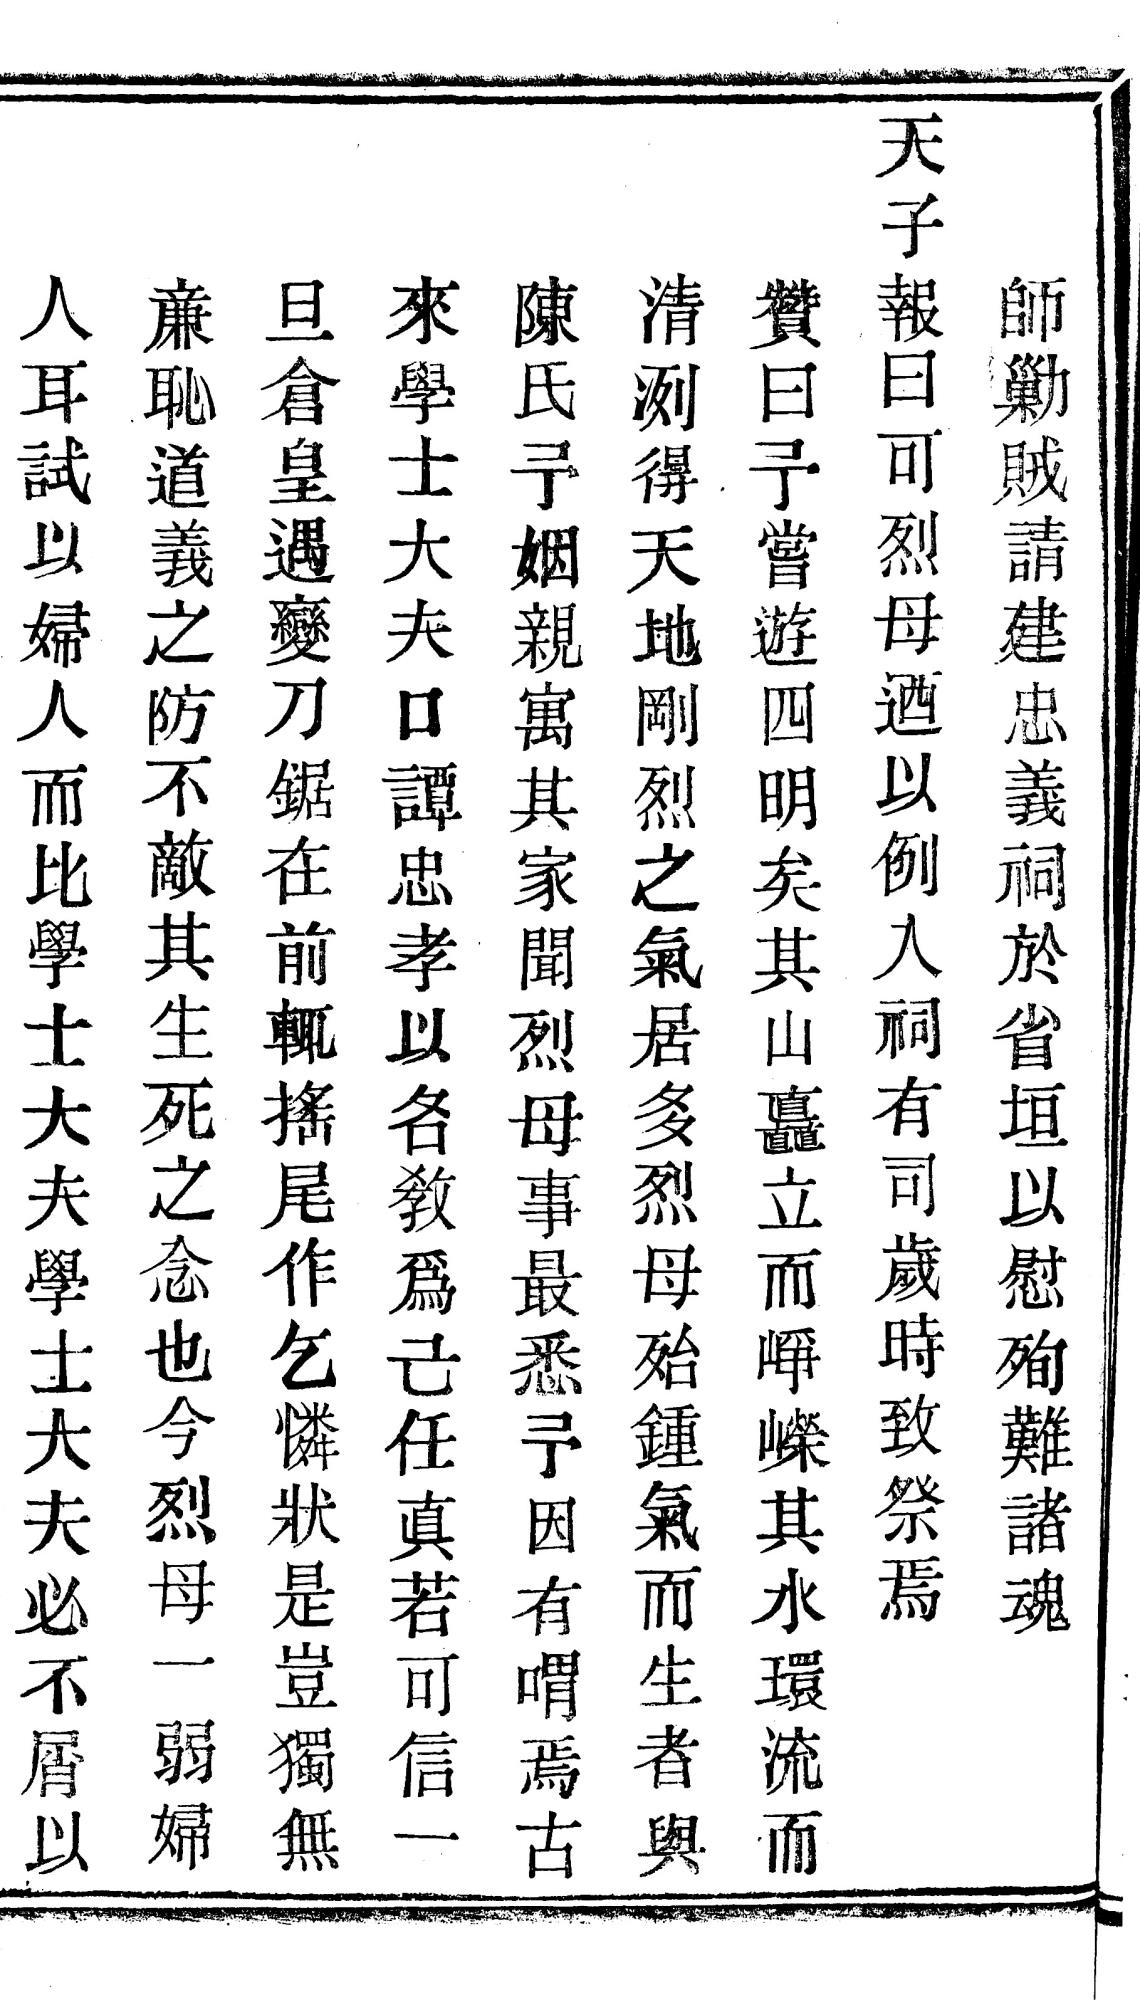 師勦賊請建忠義祠於省垣以慰殉難諸魂
天子報曰可烈母迺以例入祠有司歲時致祭焉
贊曰予嘗遊四明矣其山矗立而崢嶸其水環流而
清洌得天地剛烈之氣居多烈母殆鍾氣而生者與
陳氏予姻親寓其家聞烈母事最悉予因有喟焉古
來學士大夫口譚忠孝以名教爲己任真若可信一
旦倉皇遇變刀鋸在前輒搖尾作乞憐狀是豈獨無
亷恥道義之防不敵其生死之念也今烈母一弱婦
人耳試以婦人而比學士大夫學士大夫必不屑以